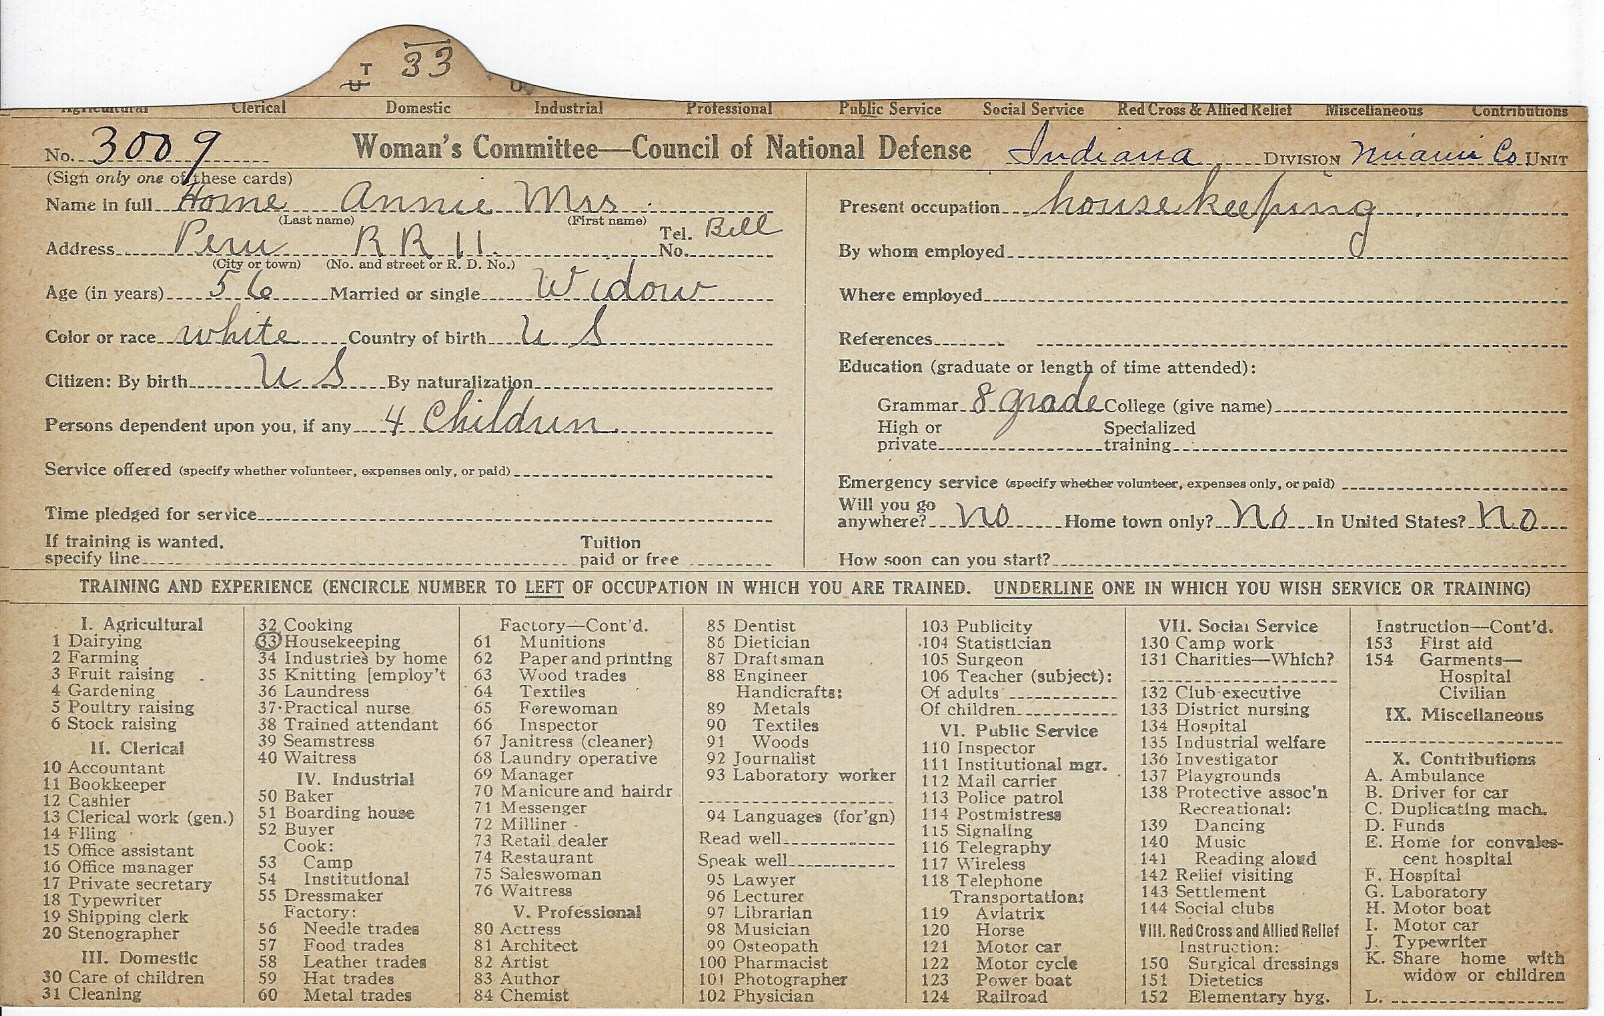 T 33
U
Agricultural Clerical Domestic Industrial Professional Public Service Social Service Red Cross & Allied Relief Miscellaneous Contributions
No. 3009 Woman's Committee—Council of National Defense Indiana DIVISION Miami Co UNIT
(Sign only one of these cards)
Name in full Home Annie Mrs
(Last name) (First name)
Address Peru R R 11. Tel. No. Bell
(City or town) (No. and street or R. D. No.)
Age (in years) 56 Married or single Widow
Color or race white Country of birth U S
Citizen: By birth U S By naturalization
Persons dependent upon you, if any 4 Children
Service offered (specify whether volunteer, expenses only, or paid)
Time pledged for service
If training is wanted, specify line Tuition paid or free
Present occupation housekeeping
By whom employed
Where employed
References
Education (graduate or length of time attended):
Grammar 8 grade College (give name)
High or private Specialized training
Emergency service (specify whether volunteer, expenses only, or paid)
Will you go anywhere? no Home town only? No In United States? No
How soon can you start?
TRAINING AND EXPERIENCE (ENCIRCLE NUMBER TO LEFT OF OCCUPATION IN WHICH YOU ARE TRAINED. UNDERLINE ONE IN WHICH YOU WISH SERVICE OR TRAINING)
I. Agricultural
1 Dairying
2 Farming
3 Fruit raising
4 Gardening
5 Poultry raising
6 Stock raising
II. Clerical
10 Accountant
11 Bookkeeper
12 Cashier
13 Clerical work (gen.)
14 Filing
15 Office assistant
16 Office manager
17 Private secretary
18 Typewriter
19 Shipping clerk
20 Stenographer
III. Domestic
30 Care of children
31 Cleaning
32 Cooking
33 Housekeeping
34 Industries by home
35 Knitting [employ't
36 Laundress
37 Practical nurse
38 Trained attendant
39 Seamstress
40 Waitress
IV. Industrial
50 Baker
51 Boarding house
52 Buyer
Cook:
53 Camp
54 Institutional
55 Dressmaker
Factory:
56 Needle trades
57 Food trades
58 Leather trades
59 Hat trades
60 Metal trades
Factory—Cont'd.
61 Munitions
62 Paper and printing
63 Wood trades
64 Textiles
65 Forewoman
66 Inspector
67 Janitress (cleaner)
68 Laundry operative
69 Manager
70 Manicure and hairdr
71 Messenger
72 Milliner
73 Retail dealer
74 Restaurant
75 Saleswoman
76 Waitress
V. Professional
80 Actress
81 Architect
82 Artist
83 Author
84 Chemist
85 Dentist
86 Dietician
87 Draftsman
88 Engineer
Handicrafts:
89 Metals
90 Textiles
91 Woods
92 Journalist
93 Laboratory worker
94 Languages (for'gn)
Read well
Speak well
95 Lawyer
96 Lecturer
97 Librarian
98 Musician
99 Osteopath
100 Pharmacist
101 Photographer
102 Physician
103 Publicity
104 Statistician
105 Surgeon
106 Teacher (subject):
Of adults
Of children
VI. Public Service
110 Inspector
111 Institutional mgr.
112 Mail carrier
113 Police patrol
114 Postmistress
115 Signaling
116 Telegraphy
117 Wireless
118 Telephone
Transportation:
119 Aviatrix
120 Horse
121 Motor car
122 Motor cycle
123 Power boat
124 Railroad
VII. Social Service
130 Camp work
131 Charities—Which?
132 Club executive
133 District nursing
134 Hospital
135 Industrial welfare
136 Investigator
137 Playgrounds
138 Protective assoc'n
Recreational:
139 Dancing
140 Music
141 Reading aloud
142 Relief visiting
143 Settlement
144 Social clubs
VIII. Red Cross and Allied Relief
Instruction:
150 Surgical dressings
151 Dietetics
152 Elementary hyg.
Instruction—Cont'd.
153 First aid
154 Garments—
Hospital
Civilian
IX. Miscellaneous
X. Contributions
A. Ambulance
B. Driver for car
C. Duplicating mach.
D. Funds
E. Home for convales-
cent hospital
F. Hospital
G. Laboratory
H. Motor boat
I. Motor car
J. Typewriter
K. Share home with
widow or children
L.